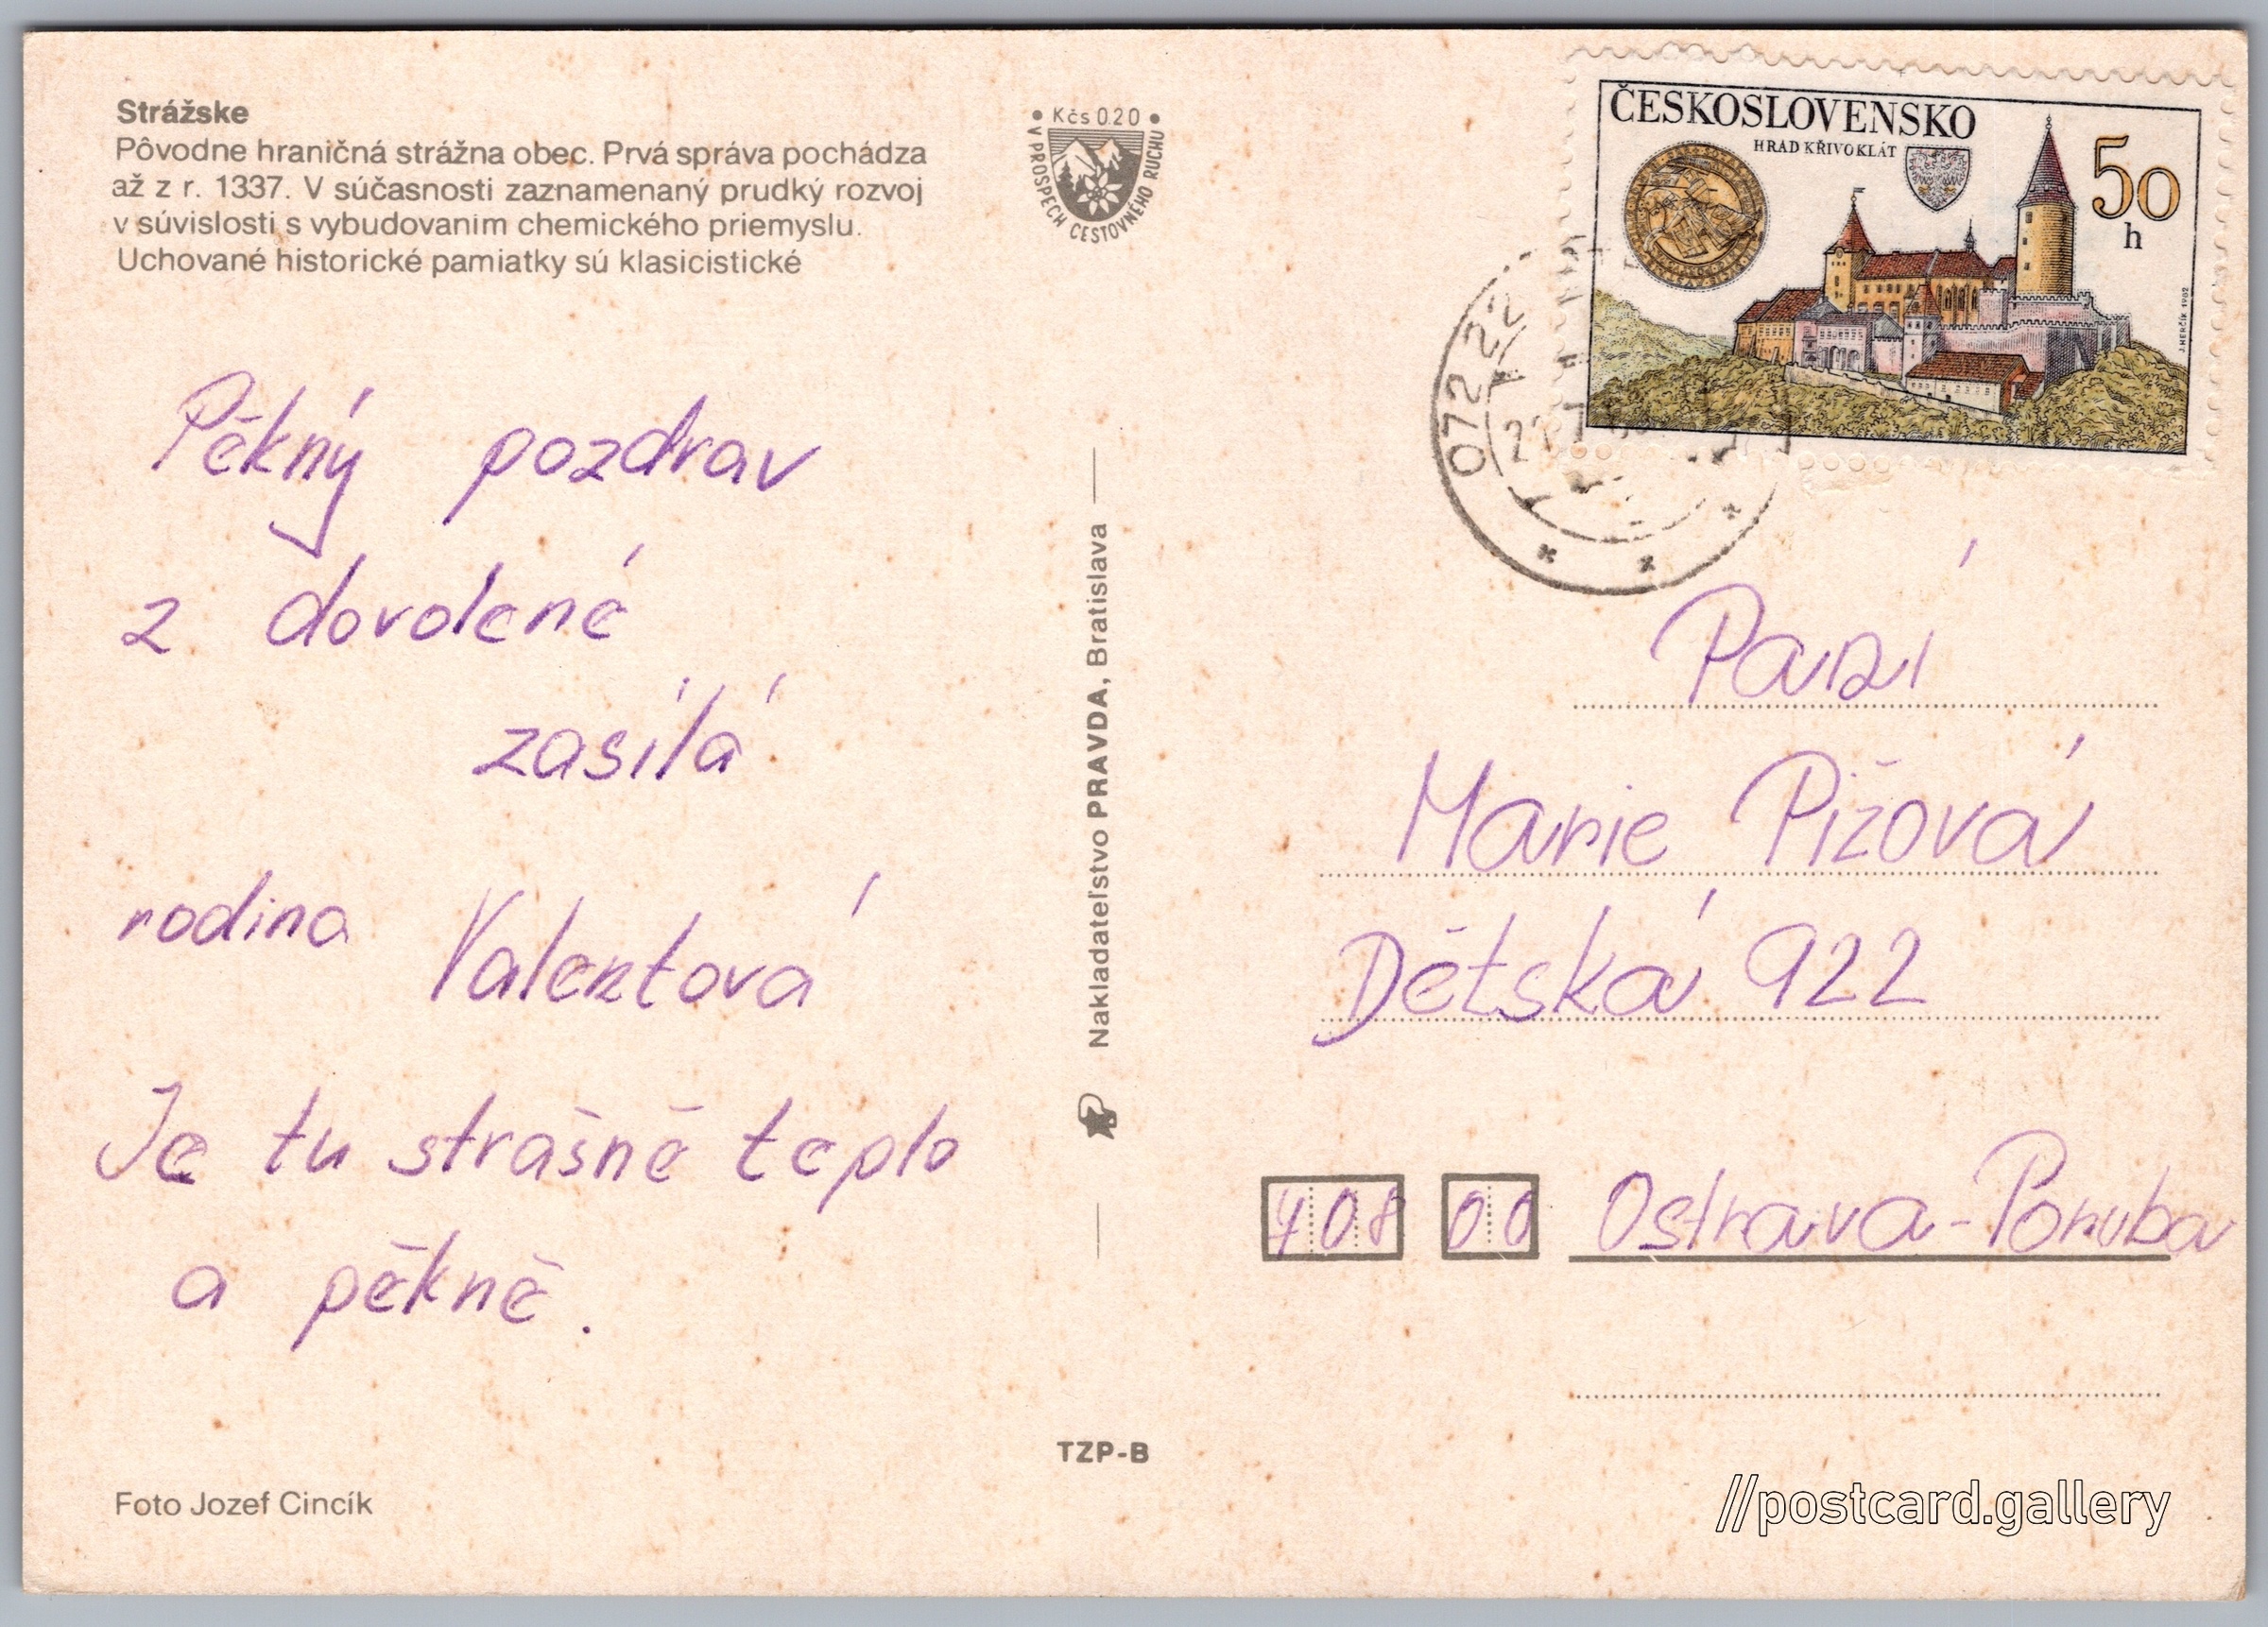 Strážske
Pôvodne hraničná strážna obec. Prvá správa pochádza
až z r. 1337. V súčasnosti zaznamenaný prudký rozvoj
v súvislosti s vybudovaním chemického priemyslu.
Uchované historické pamiatky sú klasicistické
Pěkný pozdrav
z dovolené
zasílá
rodina Valentová
Je tu strašně teplo
a pěkně.
Foto Jozef Cincík
• Kčs 0.20 •
V PROSPECH CESTOVNÉHO RUCHU
Nakladateľstvo PRAVDA, Bratislava
TZP-B
ČESKOSLOVENSKO
HRAD KŘIVOKLÁT
50
h
J. HERČÍK 1982
072 22
Paní
Marie Pižová
Dětská 922
708 00 Ostrava-Poruba
//postcard.gallery